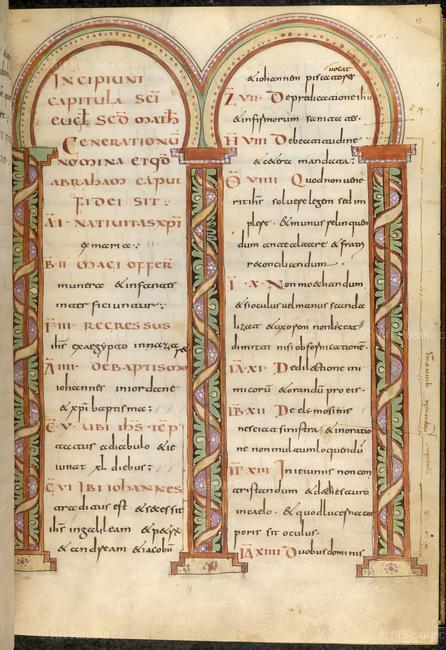 INCIPIUNT
CAPITULA SCI
EUGL SCD MATH
GENERATIONU
NOMINA ET QD
ABRAHAM CAPUT
FIDEI SIT
A I NATIVITAS XPI
ex maria
B II MAGI OFFER
munera & infantes
interficiuntur
REGRESSUS
ihs ex aegypto
IIII DE BAPTISMO
iohannes in iordane
& xpi baptisma
E V UBI IHS TEP
tatus a diabulo & ie
iunat XL diebus
VI IBI IOHANNES
traditus est & secessit
ihs in galileam & petrum
& andream & iacobu
& iohannem piscatores
vocat
Z VII De predicatione ihu
& infirmorum sanitates
H VIII De beatitudine
& cetera mandata
VIIII Quod non vene
rit ihs solvere legem sed im
plere & munus relinquen
dum ante altare & fratri
reconciliandum
I X Non moechandum
& si oculus vel manus scanda
lizat & uxorem non liceat
dimitti nisi ob fornicatione
IA XI De dilectione ini
micorum & orandum pro eis
IB XII De elemosinis
nesciat sinistra & in oratio
ne non multum loquendu
XIII In ieiuniis non con
tristandum & de thesauro
in caelo & quod lucerna cor
poris sit oculus
IA XIIII Duobus dominis
15